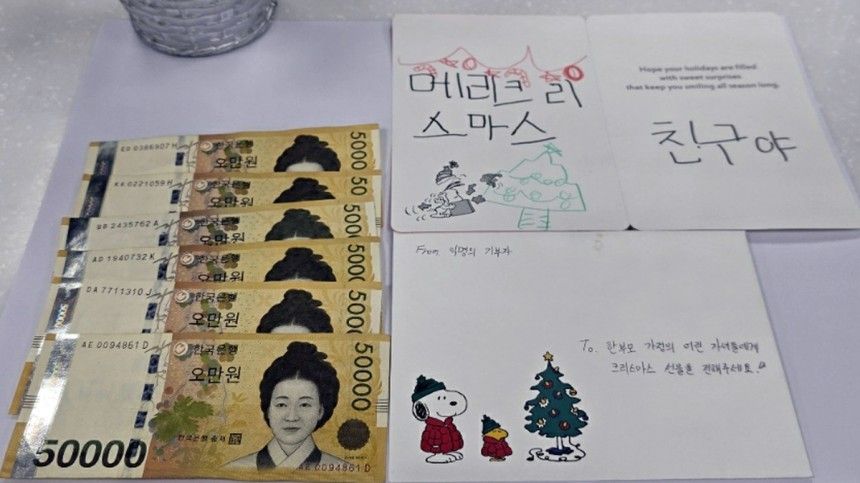 ED 0386907 H
한국은행
오만원
50000
KK 0221059 H
한국은행
오만원
2435762 A
한국은행
오만원
AD 1940732 K
한국은행
오만원
DA 7711310 J
한국은행
오만원
AE 0094861 D
한국은행
오만원
50000
한국은행 총재
50000
AE 0094861 D
메리크리
스마스
Hope your holidays are filled
with sweet surprises
that keep you smiling all season long.
친구야
From 익명의 기부자
To. 한부모 가정의 어린 자녀들에게
크리스마스 선물을 전해주세요!